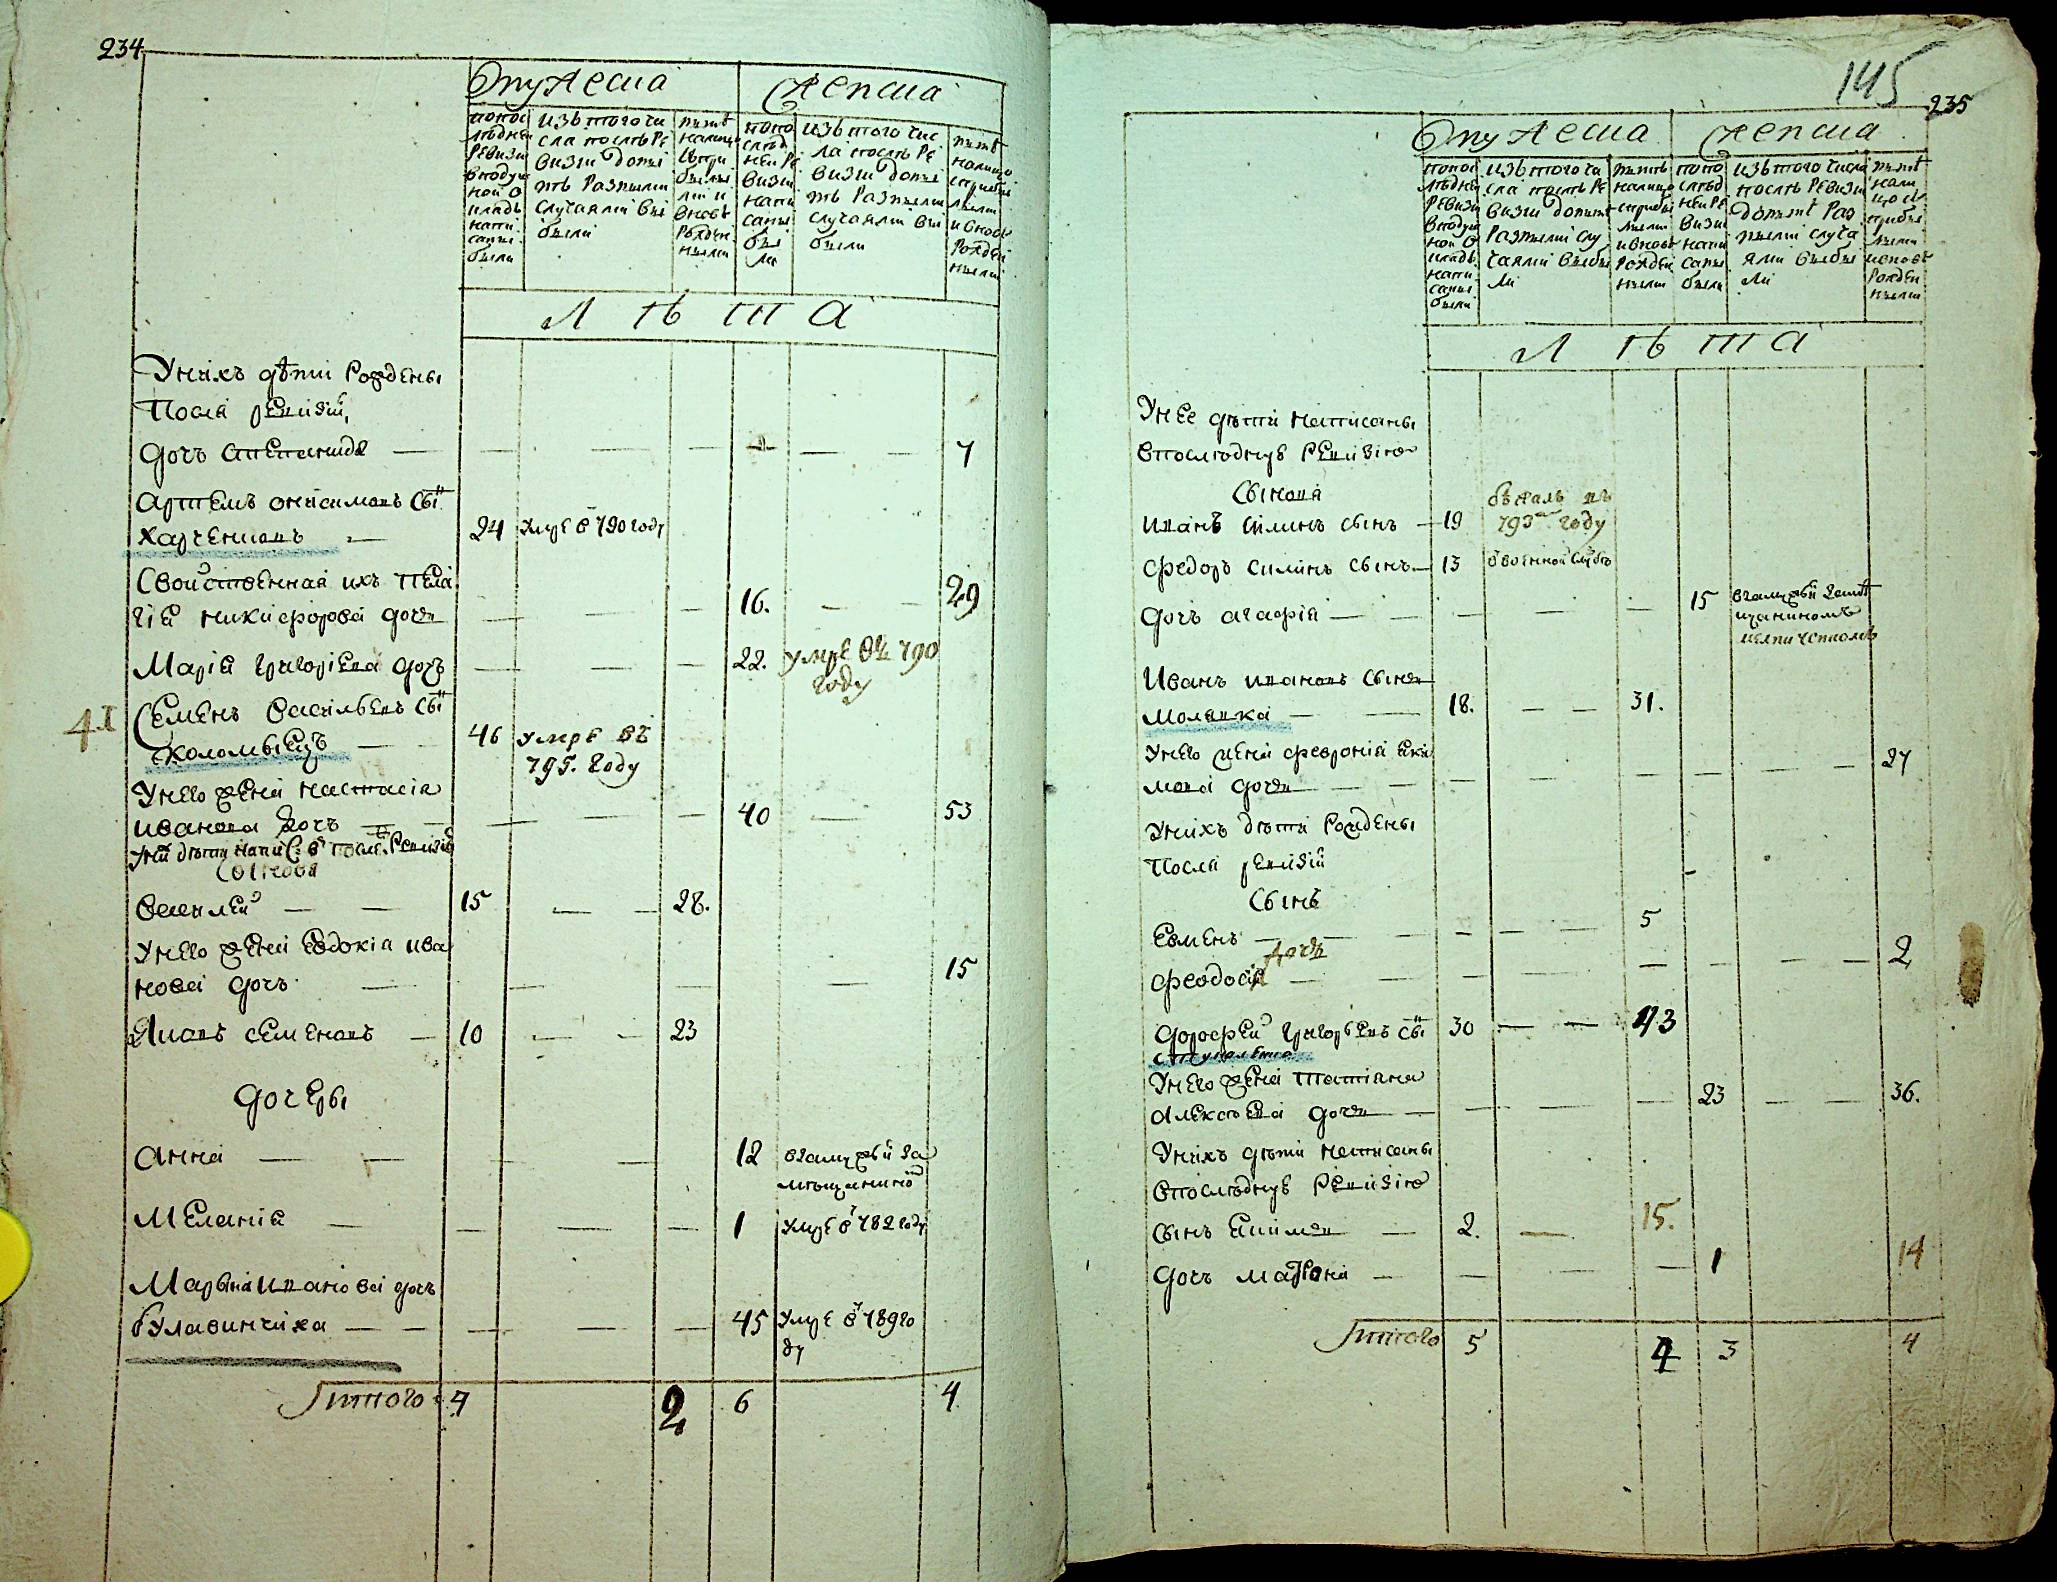 234
Мужеска
Женска
попос
лѣдней
ревизіи
вподуш
ной о
кладъ
напи
саны
были
изъ того чи
сла послѣ ре
визіи допы
нѣ разными
случаями вы
были
нынѣ
налицо
съпри
былы
ми и
вновь
рожден
ными
попо
слѣд
ней ре
визіи
напи
саны
бы
ли
изъ того чис
ла послѣ ре
визіи допы
нѣ разными
случаями вы
были
нынѣ
налицо
сприбы
лыми
и вновь
рожден
ными
Л Ѣ Т А
Унихъ дѣти рождены
Послѣ ревизіи
дочь Степанида — — — — 7
Артемъ Онисимовъ сынъ
Харченковъ — 24 умре в 790 году
Свойственная ихъ Пела
гія Никифорова дочь — — 16. — — 29
Марія Григоріева дочь — — — 22. умре въ 790
году
41 Семенъ Васильевъ сынъ
Коломыецъ — — 46 умре въ
795. году
Унего жена Настасія
Иванова дочь — — — — 40 — 53
Уних дѣти напис: в после. ревизію
Сыновя
Василей — — 15 — — 28.
Унего жена Евдокія Ива
нова дочь — — — — 15
Яковъ Семеновъ — 10 — — 23
Дочеры
Анна — — — — 12 взамужьи за
мѣщанином
Меланія — — — — 1 умре в 782 году
Марья Иванова дочь
Булавинчиха — — — — — 45 умре в 789 го
ду
Итого 4 2 6 4
145
235
Мужеска
Женска
попос
лѣдней
ревизіи
вподуш
ной о
кладъ
напи
саны
были
изъ того чи
сла послѣ ре
визіи допынѣ
разными слу
чаями выбы
ли
нынѣ
налицо
сприбы
лыми
и вновь
рожден
ными
попо
слѣд
ней ре
визіи
напи
саны
были
изъ того числа
послѣ ревизіи
допынѣ раз
ными случа
ями выбы
ли
нынѣ
нали
цо съ
прибы
лыми
ивновь
рожден
ными
Л Ѣ Т А
Унее дѣти написаны
впослѣдную ревизію
Сыновя
Иванъ Силинъ сынъ — 19 бѣжалъ въ
793м году
Федоръ Силинъ сынъ — 13 ввоенной службѣ
Дочь Агафія — — — — 15 взамужьи за мѣ
щаниномъ
Иванъ Ивановъ сынъ
Молявка — — 18. — — 31.
Унего жена Февронія Еки
мова дочь — — — — — — — — 27
Унихъ дѣти рождены
Послѣ ревизіи
Сынъ
Семенъ — — — — — — 5
дочь
Феодосія — — — — — — — — 2
Дорофей Григорьевъ сынъ 30 — — 43
Унего жена Татіана
Алексѣева дочь — — — — 23 — — 36.
Унихъ дѣти написаны
впослѣднуюю ревизію
Сынъ Ефимъ — 2. — 15.
Дочь Матрона — — — — 1 14
Итого 5 4 3 4